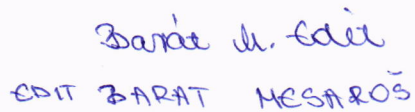 Barát M. Edit
EDIT BARAT MESAROŠ